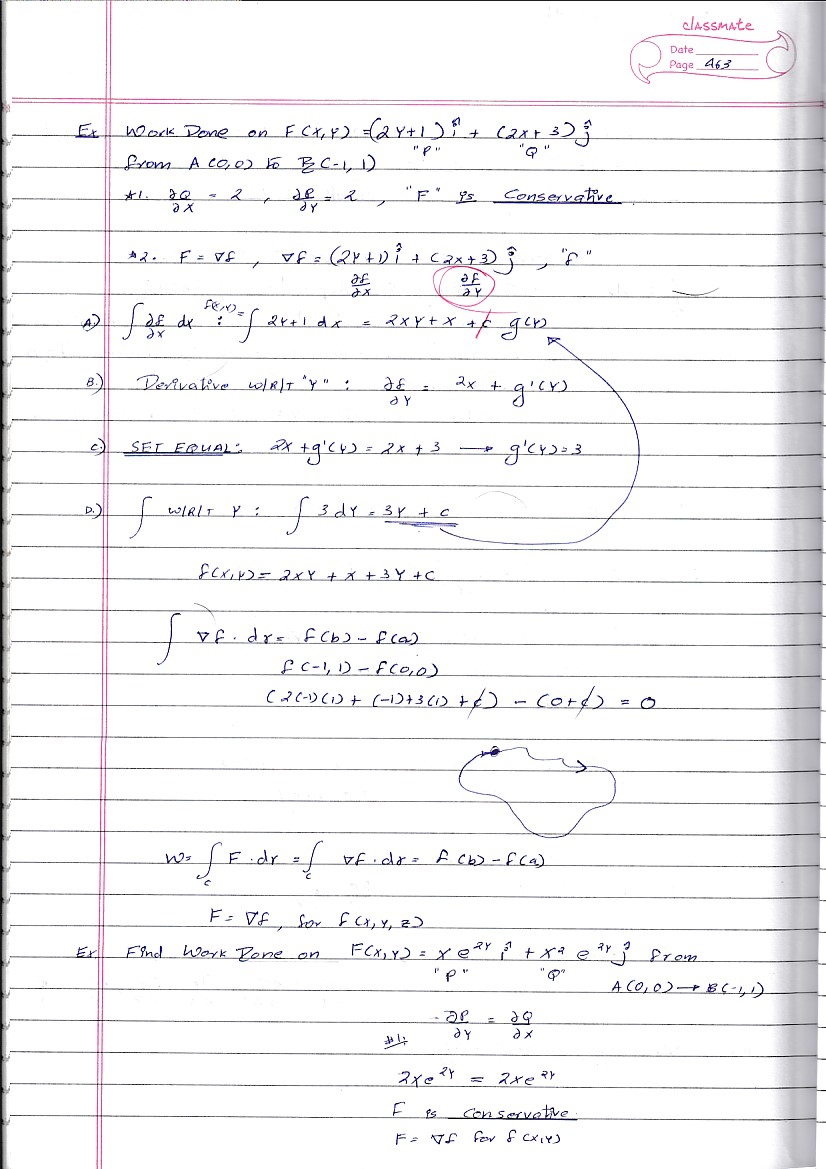 classmate
Date
Page 463
Ex Work Done on F(x,y) = (2y+1) î + (2x+3) ĵ
"P" "Q"
from A(0,0) to B(-1,1)
*1. ∂Q/∂x = 2 , ∂P/∂y = 2 , "F" is Conservative
*2. F = ∇f , ∇f = (2y+1) î + (2x+3) ĵ , "f"
∂f/∂x ∂f/∂y
A.) ∫ ∂f/∂x dx : f(x,y) = ∫ 2y+1 dx = 2xy + x + c g(y)
B.) Derivative w/R/T "y" : ∂f/∂y = 2x + g'(y)
C.) SET EQUAL: 2x + g'(y) = 2x + 3 → g'(y) = 3
D.) ∫ w/R/T y : ∫ 3 dy = 3y + c
f(x,y) = 2xy + x + 3y + c
∫ ∇f · dr = f(b) - f(a)
f(-1,1) - f(0,0)
(2(-1)(1) + (-1)+3(1) + c) - (0+c) = 0
W = ∫c F · dr = ∫c ∇f · dr = f(b) - f(a)
F = ∇f , for f(x,y,z)
Ex Find Work Done on F(x,y) = x e^2y î + x² e^2y ĵ from
"P" "Q" A(0,0) → B(-1,1)
#1: ∂P/∂y = ∂Q/∂x
2xe^2y = 2xe^2y
F is conservative.
F = ∇f for f(x,y)